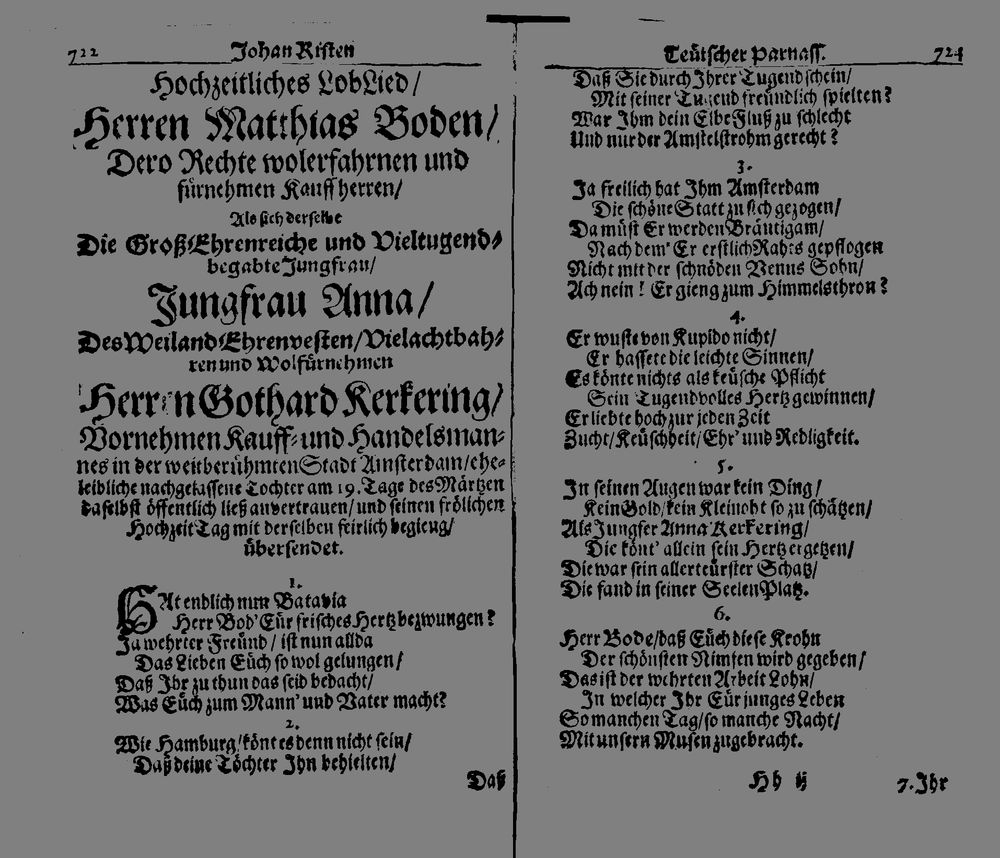 722 Johan Risten
Hochzeitliches LobLied/
Herren Matthias Boden/
Dero Rechte wolerfahrnen und
fürnehmen Kauffherren/
Als sich derselbe
Die Groß Ehrenreiche und Vieltugend-
begabte Jungfrau/
Jungfrau Anna/
Des Weiland Ehrenvesten/ Vielachtbah-
ren und Wolfürnehmen
Herren Gothard Kerkering/
Vornehmen Kauff- und Handelsman-
nes in der weitberühmten Stadt Amsterdam/ ehe-
leibliche nachgelassene Tochter am 19. Tage des Märtzen
daselbst öffentlich ließ anvertrauen/ und seinen frölichen
Hochzeit Tag mit derselben feirlich begieng/
übersendet.
1.
HAt endlich nun Batavia
Herr Bod' Eür frisches Hertz bezwungen?
Ja wehrter Freünd/ ist nun allda
Das Lieben Eüch so wol gelungen/
Daß Ihr zu thun das seid bedacht/
Was Eüch zum Mann' und Vater macht?
2.
Wie Hamburg/ könt es denn nicht sein/
Daß deine Töchter Ihn behielten/
Daß
Teütscher Parnass. 724
Daß Sie durch Ihrer Tugend schein/
Mit seiner Tugend freündlich spielten?
War Ihm dein Elbe Fluß zu schlecht
Und nur der Amstelstrohm gerecht?
3.
Ja freilich hat Ihm Amsterdam
Die schöne Statt zu sich gezogen/
Da müst Er werden Bräutigam/
Nach dem' Er erstlich Rahts gepflogen
Nicht mit der schnöden Venus Sohn/
Ach nein! Er gieng zum Himmelsthron?
4.
Er wuste von Kupido nicht/
Er hassete die leichte Sinnen/
Es könte nichts als keüsche Pflicht
Sein Tugendvolles Hertz gewinnen/
Er liebte hoch zur jeden Zeit
Zucht/ Keüschheit/ Ehr' und Redligkeit.
5.
In seinen Augen war kein Ding/
Kein Gold/ kein Kleinoht so zu schätzen/
Als Jungfer Anna Kerkering/
Die könt' allein sein Hertz ergetzen/
Die war sein allerteürster Schatz/
Die fand in seiner Seelen Platz.
6.
Herr Bode/ daß Eüch diese Krohn
Der schönsten Nimfen wird gegeben/
Das ist der wehrten Arbeit Lohn/
In welcher Ihr Eür junges Leben
So manchen Tag/ so manche Nacht/
Mit unsern Musen zugebracht.
Hh ij 7. Ihr